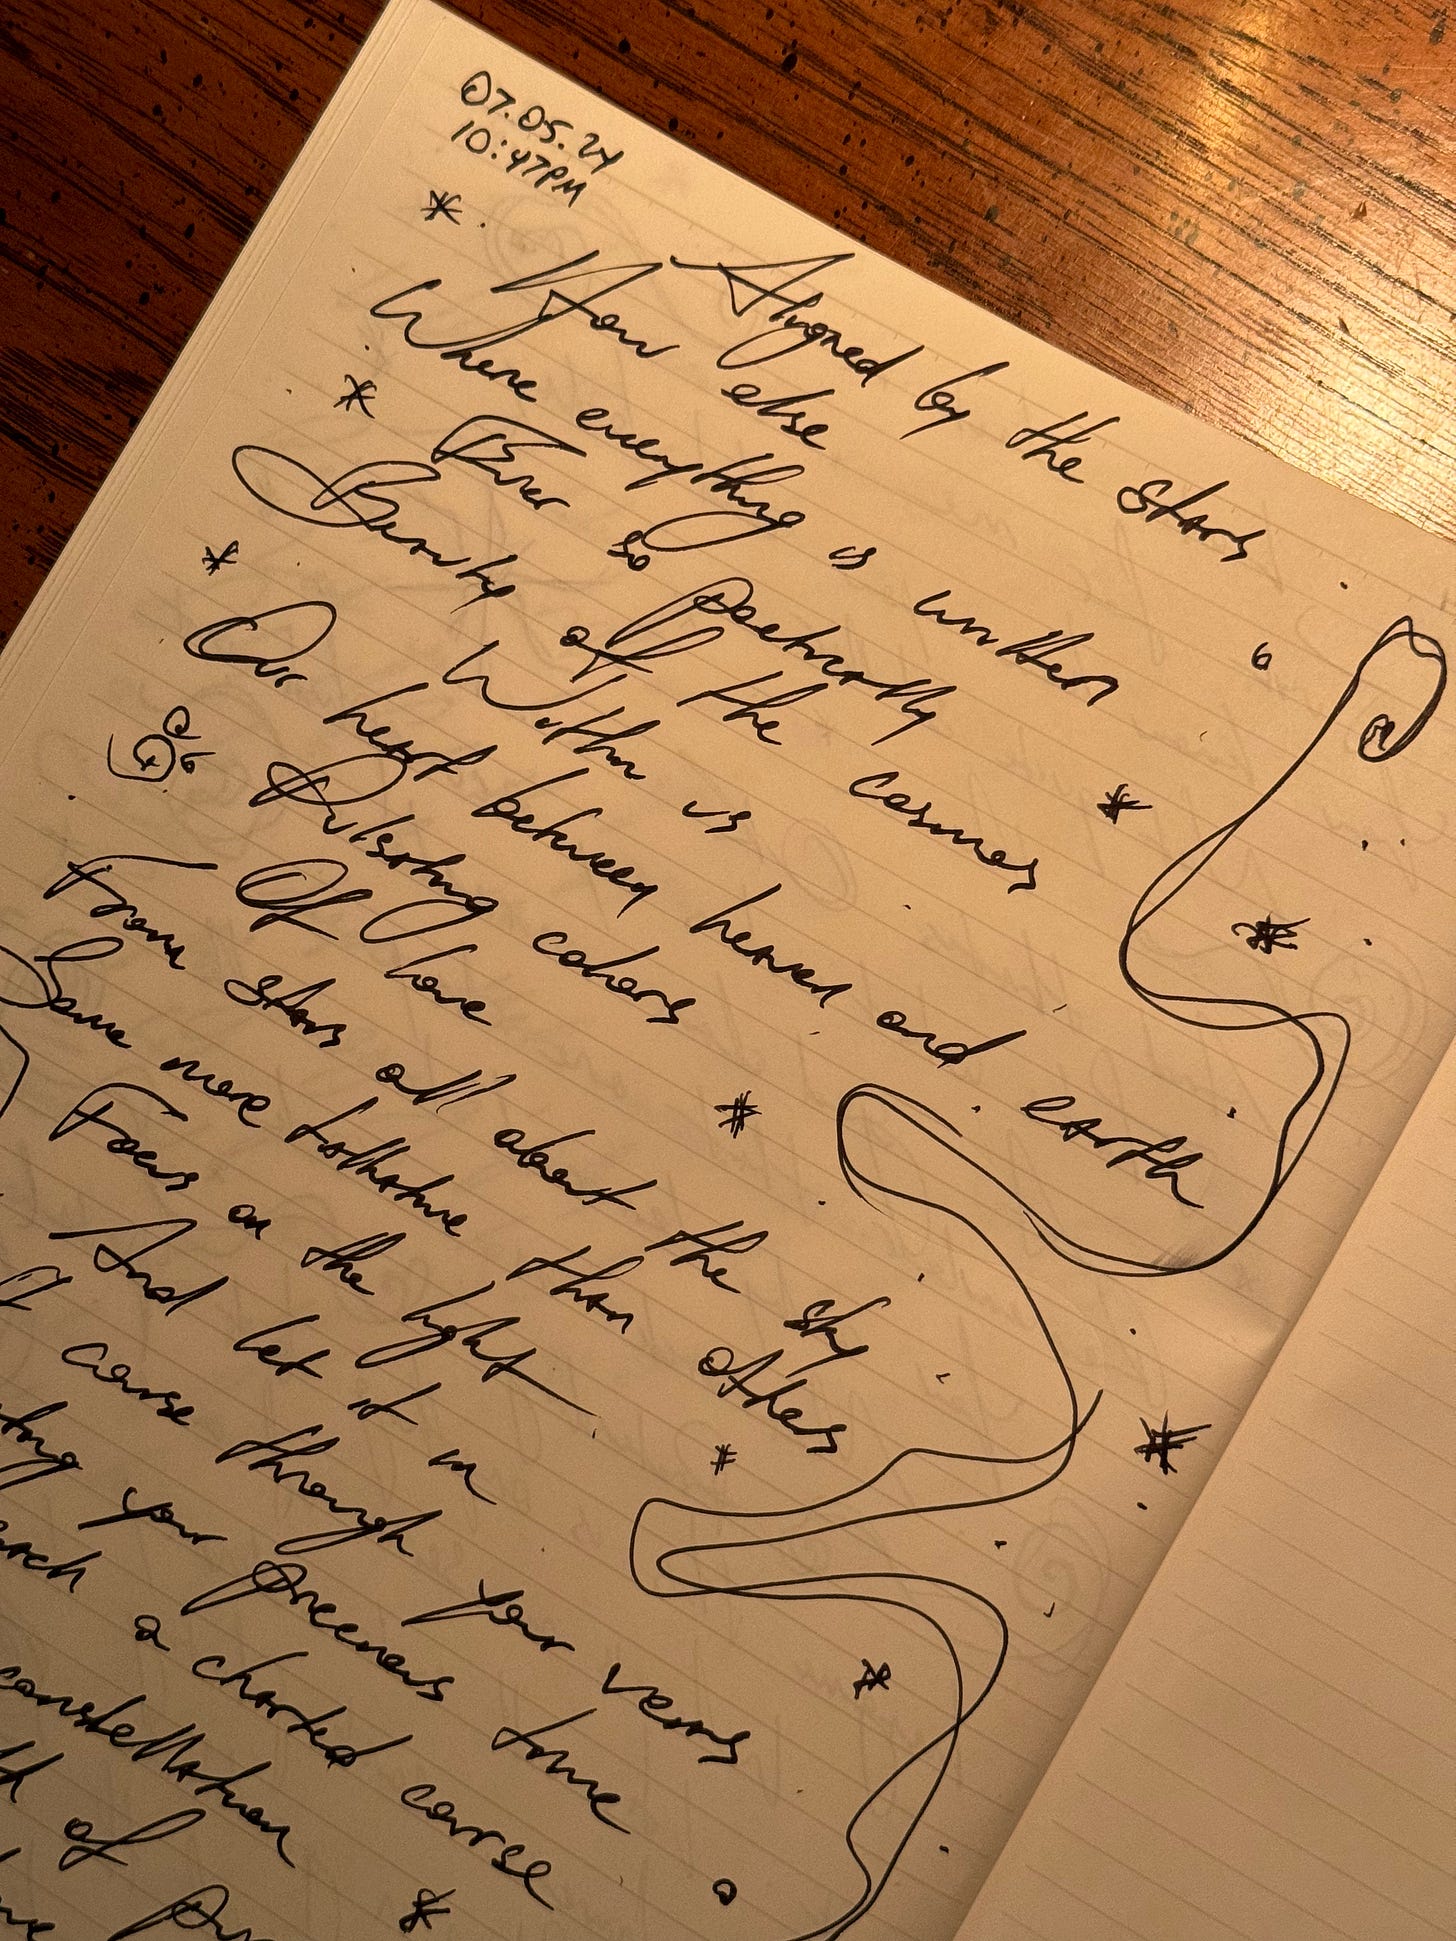 07.05.24
10:47PM
Aligned by the stars
How else
Where everything is written
Ever so poetically
Beauty of the cosmos
Within us
Our heart between heaven and earth
Pulsating colors
Of love
From stars all about the sky
Some more talkative than others
Focus on the light
And let it in
it course through your veins
your precious time
a charted course
constellation
of